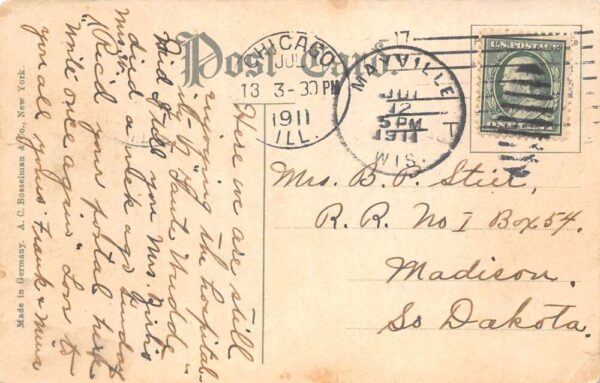 Post Card.
CHICAGO
JUL
13 3-30 PM
1911
ILL.
17
MAYVILLE
JUL
12
5 PM
1911
WIS.
U.S. POSTAGE
Mrs. B. P. Stier,
R. R. No 1 Box 54.
Madison.
So Dakota.
Here we are still
enjoying the hospital-
ity of "Aunt
Did I tell you Mrs.
died a week ago Sunday
(Rec'd your postal here
"Write once again" Love to
you all yours Frank &
Made in Germany. A. C. Bosselman & Co., New York.